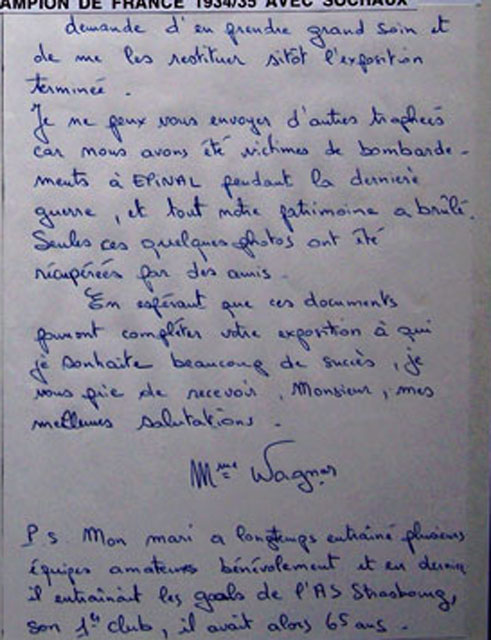 AMPION DE FRANCE 1934/35 AVEC SOCHAUX
demande d'en prendre grand soin et
de me les restituer sitôt l'exposition
terminée.
Je ne peux vous envoyer d'autres trophées
car nous avons été victimes de bombarde-
ments à EPINAL pendant la dernière
guerre, et tout notre patrimoine a brûlé.
Seules ces quelques photos ont été
récupérées par des amis.
En espérant que ces documents
pourront compléter votre exposition à qui
je souhaite beaucoup de succès, je
vous prie de recevoir, Monsieur, mes
meilleures salutations.
Mme Wagner
P.S. Mon mari a longtemps entraîné plusieurs
équipes amateurs bénévolement et en dernier
il entraînait les goals de l'AS Strasbourg,
son 1er club, il avait alors 65 ans.